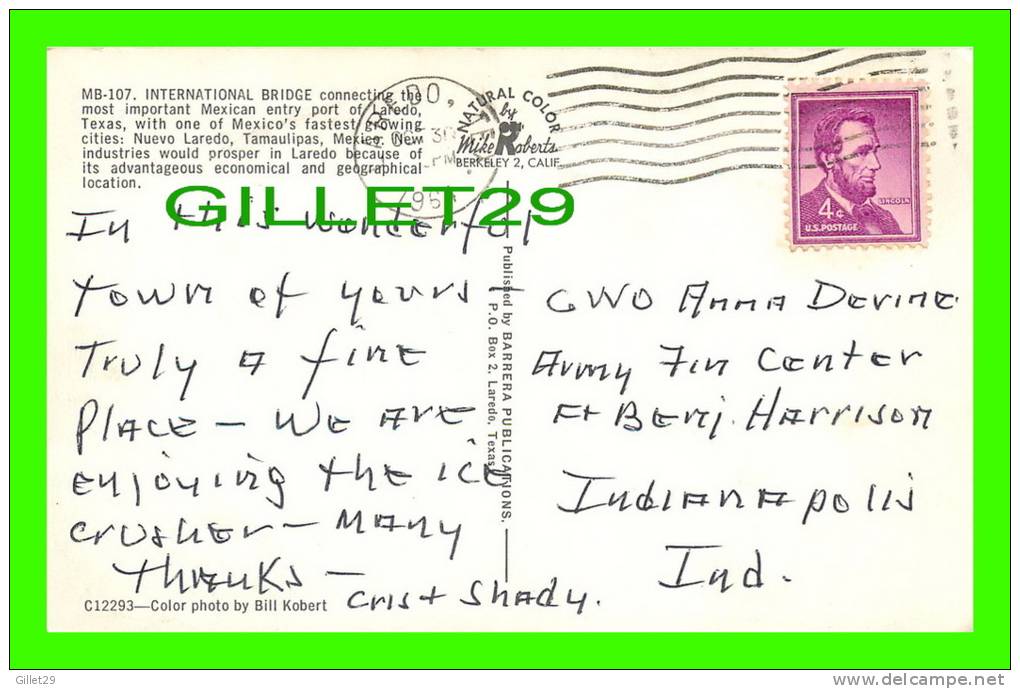 MB-107. INTERNATIONAL BRIDGE connecting the
most important Mexican entry port of Laredo,
Texas, with one of Mexico's fastest growing
cities: Nuevo Laredo, Tamaulipas, Mexico. New
industries would prosper in Laredo because of
its advantageous economical and geographical
location.
NATURAL COLOR
by
Mike Roberts
BERKELEY 2, CALIF.
30
PM
195
4¢
LINCOLN
U.S. POSTAGE
GILLET29
In this wonderful
town of yours -
Truly a fine
Place - We are
enjoying the ice
crusher - Many
thanks -
Cris + Shady.
Published by BARRERA PUBLICATIONS.
P.O. Box 2. Laredo, Texas
CWO Anna Devine
Army Fin Center
Ft Benj. Harrison
Indianapolis
Ind.
C12293—Color photo by Bill Kobert
Gillet29
www.delcampe.net